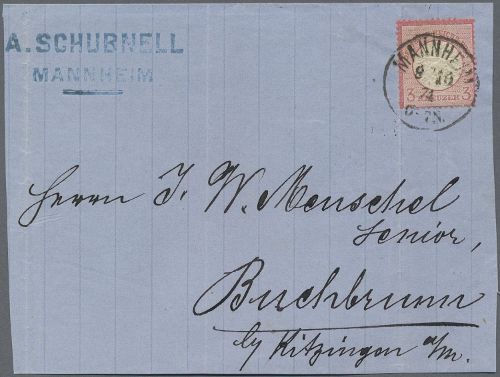 A. SCHUBNELL
MANNHEIM
MANNHEIM
9 10
74
6-7N.
3 KREUZER 3
Herrn J. W. Menschel
senior,
Buchbrunn
by Kitzingen a/m.